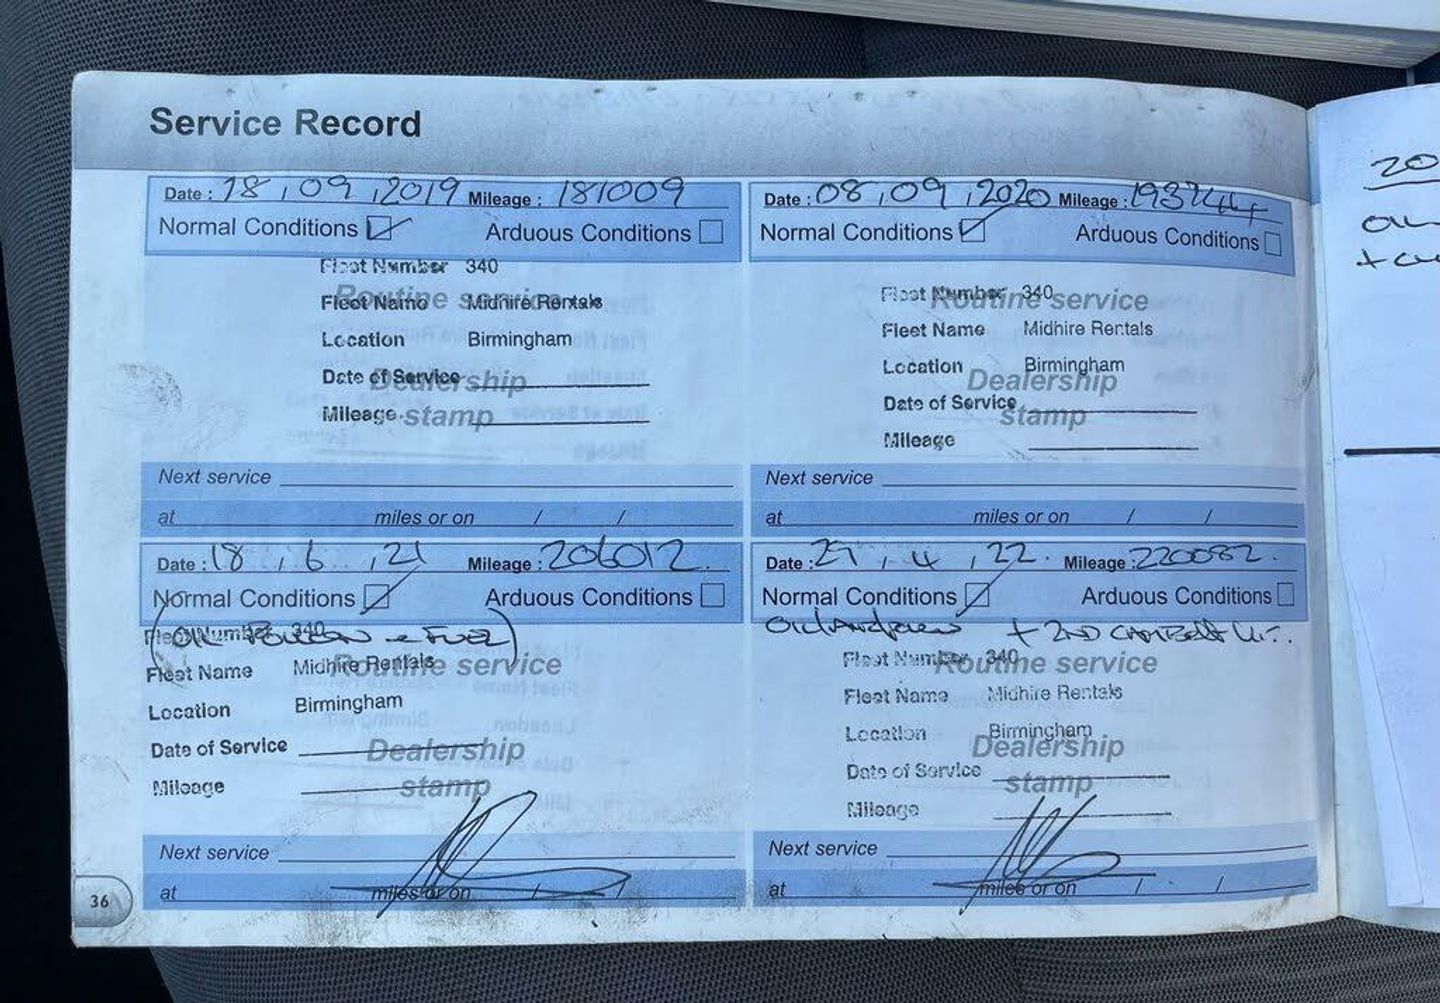 Service Record
Date : 18 , 09 , 2019 Mileage : 181009
Normal Conditions Arduous Conditions
Fleet Number 340
Routine service
Fleet Name Midhire Rentals
Location Birmingham
Date of Service
Dealership
Mileage
stamp
Next service
at miles or on / /
Date : 08 , 09 , 2020 Mileage : 193744
Normal Conditions Arduous Conditions
Fleet Number 340
Routine service
Fleet Name Midhire Rentals
Location Birmingham
Dealership
Date of Service
stamp
Mileage
Next service
at miles or on / /
Date : 18 , 6 , 21 Mileage : 206012.
Normal Conditions Arduous Conditions
(OIL POLLEN + FUEL)
Fleet Number 340
Fleet Name Midhire Rentals
Routine service
Location Birmingham
Date of Service
Dealership
Mileage
stamp
Next service
at miles or on / /
Date : 27 , 4 , 22. Mileage : 220082.
Normal Conditions Arduous Conditions
+ 2ND CAMBELT
Fleet Number 340
Routine service
Fleet Name Midhire Rentals
Location Birmingham
Dealership
Date of Service
stamp
Mileage
Next service
at miles or on / /
36
20